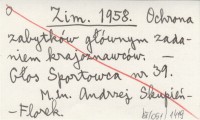 Zim. 1958. Ochrona
zabytków głównym zada-
niem krajoznawców. —
Głos Sportowca nr 39.
M. in. Andrzej Skupień-
-Florek.